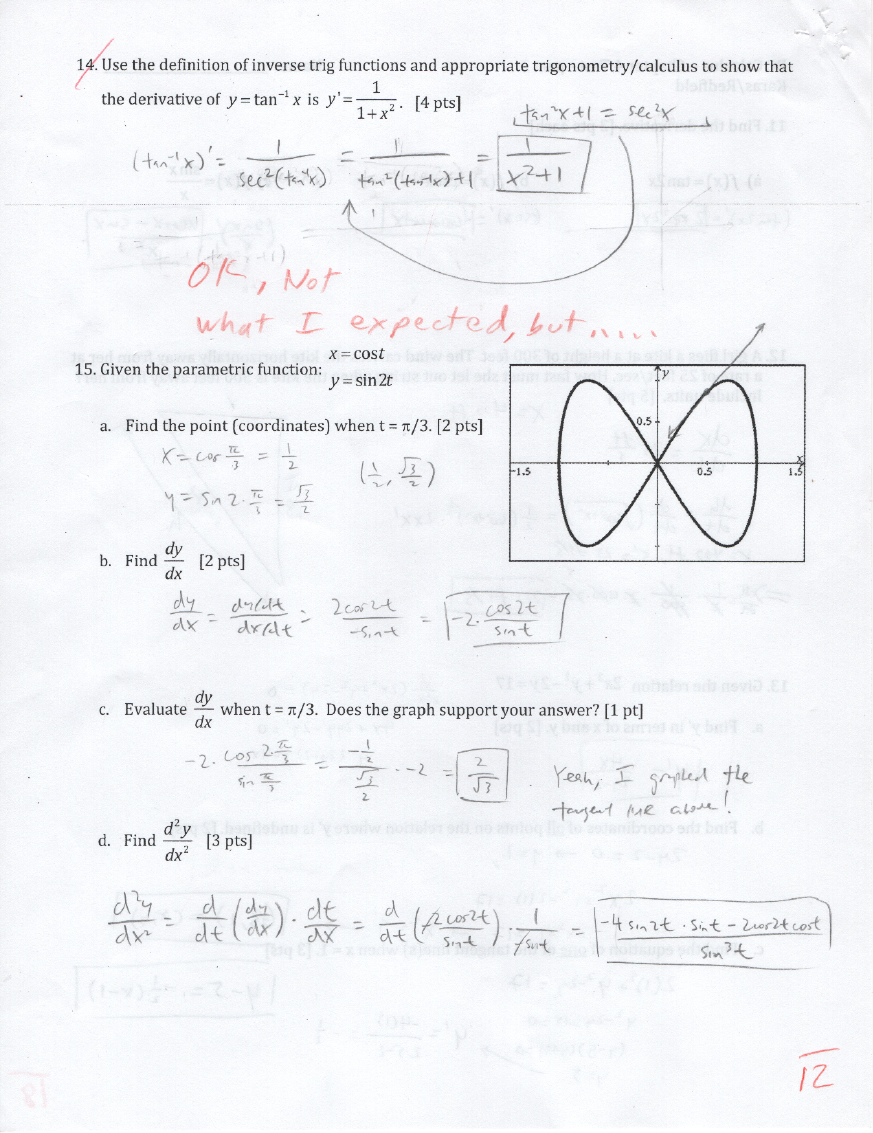 14. Use the definition of inverse trig functions and appropriate trigonometry/calculus to show that
the derivative of y = tan⁻¹ x is y' = 1/(1+x²). [4 pts]
tan²x + 1 = sec²x
(tan⁻¹x)' = 1/(sec²(tan⁻¹x)) = 1/(tan²(tan⁻¹x)+1) = 1/(x²+1)
OK, Not
what I expected, but.....
15. Given the parametric function: x = cos t
y = sin 2t
y
0.5
-1.5 0.5 x 1.5
a. Find the point (coordinates) when t = π/3. [2 pts]
x = cos π/3 = 1/2 (1/2, √3/2)
y = sin 2·π/3 = √3/2
b. Find dy/dx [2 pts]
dy/dx = (dy/dt)/(dx/dt) = (2cos2t)/(-sin t) = -2·(cos2t)/(sin t)
c. Evaluate dy/dx when t = π/3. Does the graph support your answer? [1 pt]
-2·(cos 2π/3)/(sin π/3) = (-1/2)/(√3/2) · -2 = 2/√3
Yeah, I graphed the
tangent line above!
d. Find d²y/dx² [3 pts]
d²y/dx² = d/dt (dy/dx) · dt/dx = d/dt (-2cos2t/sin t) · 1/(-sin t) = (-4 sin2t · sin t - 2cos2t cos t)/(sin³t)
12